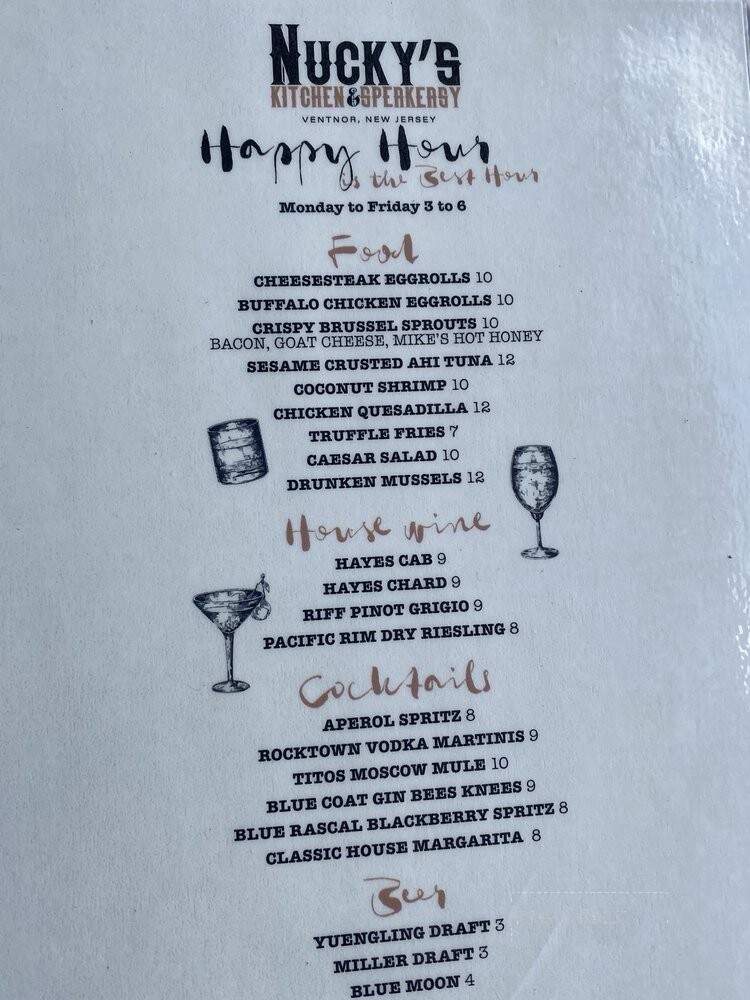 NUCKY'S
KITCHEN & SPEAKEASY
VENTNOR, NEW JERSEY
Happy Hour
is the Best Hour
Monday to Friday 3 to 6
Food
CHEESESTEAK EGGROLLS 10
BUFFALO CHICKEN EGGROLLS 10
CRISPY BRUSSEL SPROUTS 10
BACON, GOAT CHEESE, MIKE'S HOT HONEY
SESAME CRUSTED AHI TUNA 12
COCONUT SHRIMP 10
CHICKEN QUESADILLA 12
TRUFFLE FRIES 7
CAESAR SALAD 10
DRUNKEN MUSSELS 12
House wine
HAYES CAB 9
HAYES CHARD 9
RIFF PINOT GRIGIO 9
PACIFIC RIM DRY RIESLING 8
Cocktails
APEROL SPRITZ 8
ROCKTOWN VODKA MARTINIS 9
TITOS MOSCOW MULE 10
BLUE COAT GIN BEES KNEES 9
BLUE RASCAL BLACKBERRY SPRITZ 8
CLASSIC HOUSE MARGARITA 8
Beer
YUENGLING DRAFT 3
MILLER DRAFT 3
BLUE MOON 4